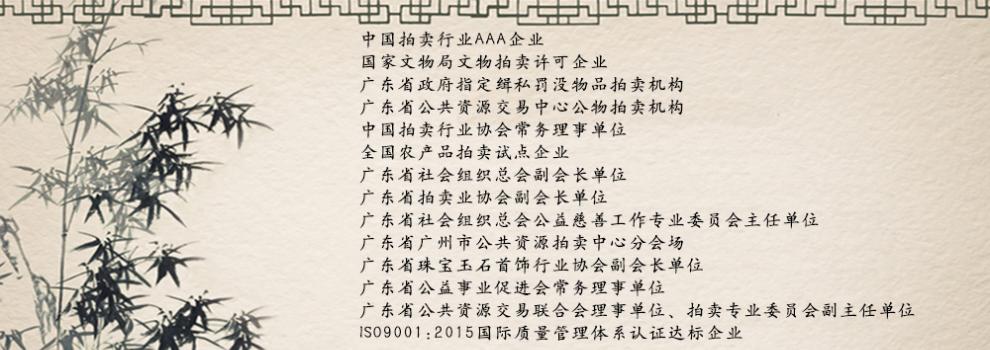 中国拍卖行业AAA企业
国家文物局文物拍卖许可企业
广东省政府指定缉私罚没物品拍卖机构
广东省公共资源交易中心公物拍卖机构
中国拍卖行业协会常务理事单位
全国农产品拍卖试点企业
广东省社会组织总会副会长单位
广东省拍卖业协会副会长单位
广东省社会组织总会公益慈善工作专业委员会主任单位
广东省广州市公共资源拍卖中心分会场
广东省珠宝玉石首饰行业协会副会长单位
广东省公益事业促进会常务理事单位
广东省公共资源交易联合会理事单位、拍卖专业委员会副主任单位
ISO9001:2015国际质量管理体系认证达标企业